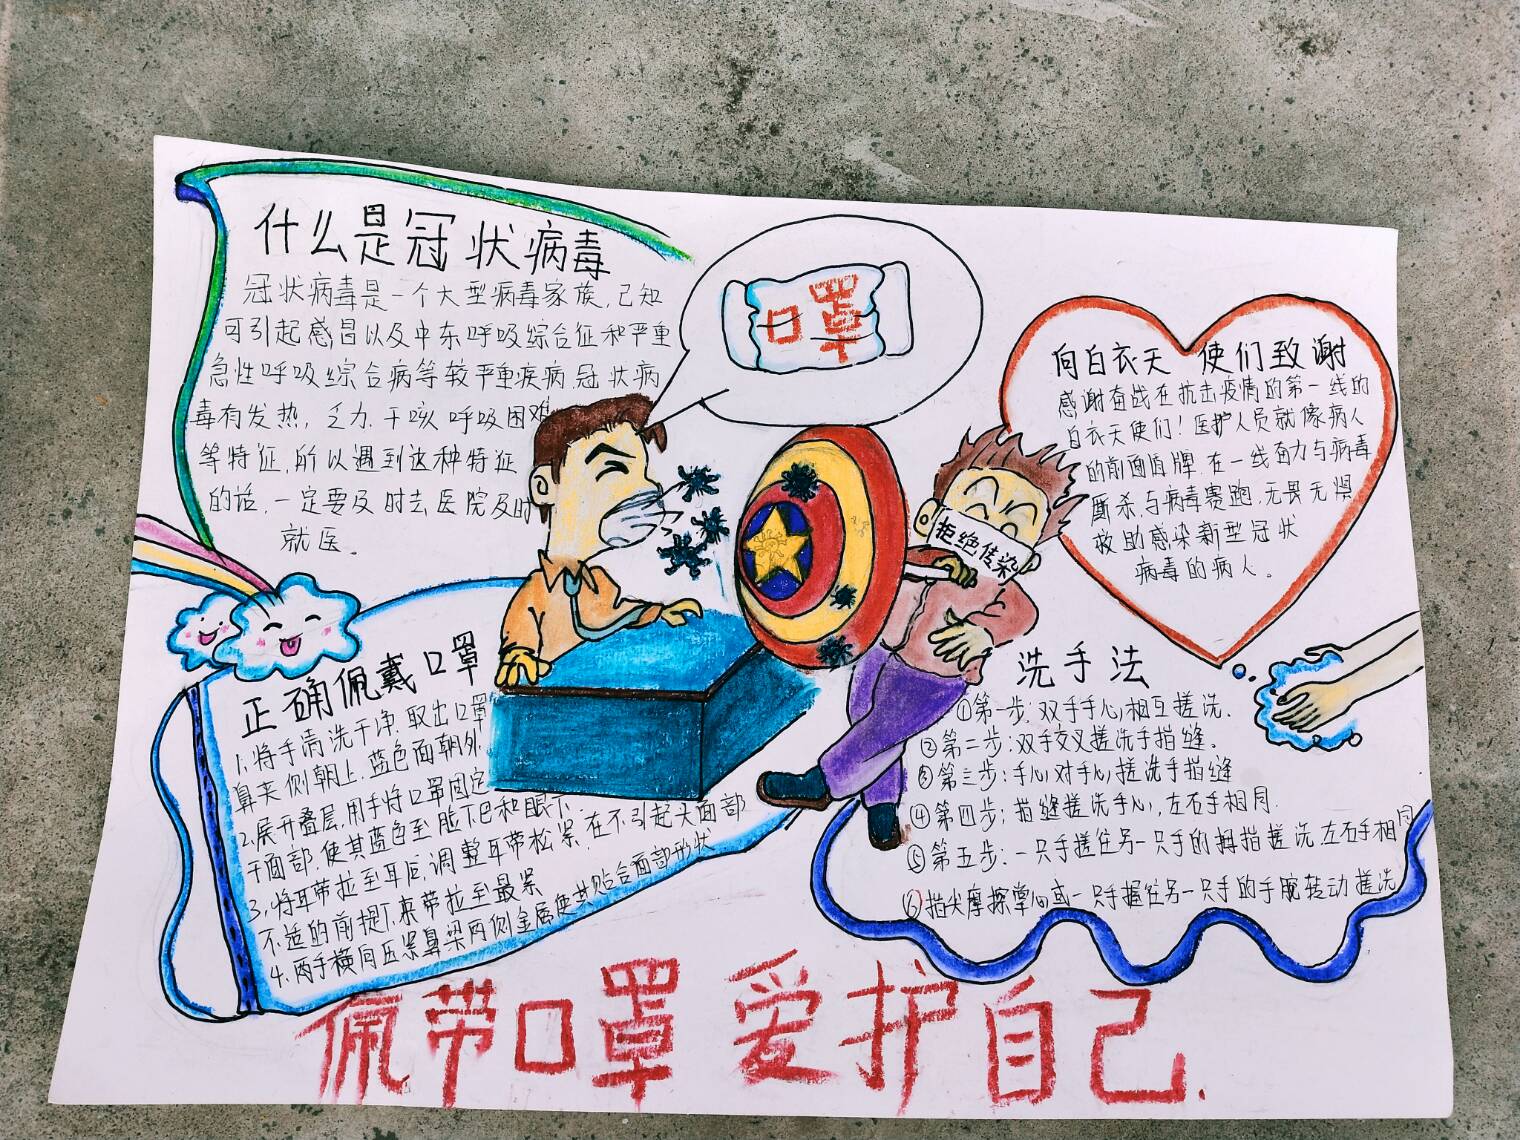 什么是冠状病毒
冠状病毒是一个大型病毒家族,已知
可引起感冒以及中东呼吸综合征和严重
急性呼吸综合病等较严重疾病.冠状病
毒有发热,乏力.干咳.呼吸困难
等特征,所以遇到这种特征
的话,一定要及时去医院及时
就医。
口罩
拒绝传染
向白衣天使们致谢
感谢奋战在抗击疫情的第一线的
白衣天使们!医护人员就像病人
的前面盾牌.在一线奋力与病毒
厮杀,与病毒赛跑,无畏无惧
救助感染新型冠状
病毒的病人。
正确佩戴口罩
1.将手清洗干净.取出口罩
鼻夹侧朝上.蓝色面朝外
2.展开叠层,用手将口罩固定
于面部.使其蓝色至脸下巴和眼下.
3.将耳带拉至耳后,调整耳带松紧.在不引起头面部
不适的前提下,来带拉至最紧
4.两手横向压紧鼻梁两侧金属使其贴合面部形状
洗手法
①第一步:双手手心相互搓洗.
②第二步:双手交叉搓洗手指缝。
③第三步:手心对手心搓洗手指缝
④第四步:指缝搓洗手心,左右手相同.
⑤第五步:一只手搓住另一只手的拇指搓洗.左右手相同
⑥指尖摩擦掌心或一只手握住另一只手的手腕转动搓洗
佩带口罩 爱护自己.